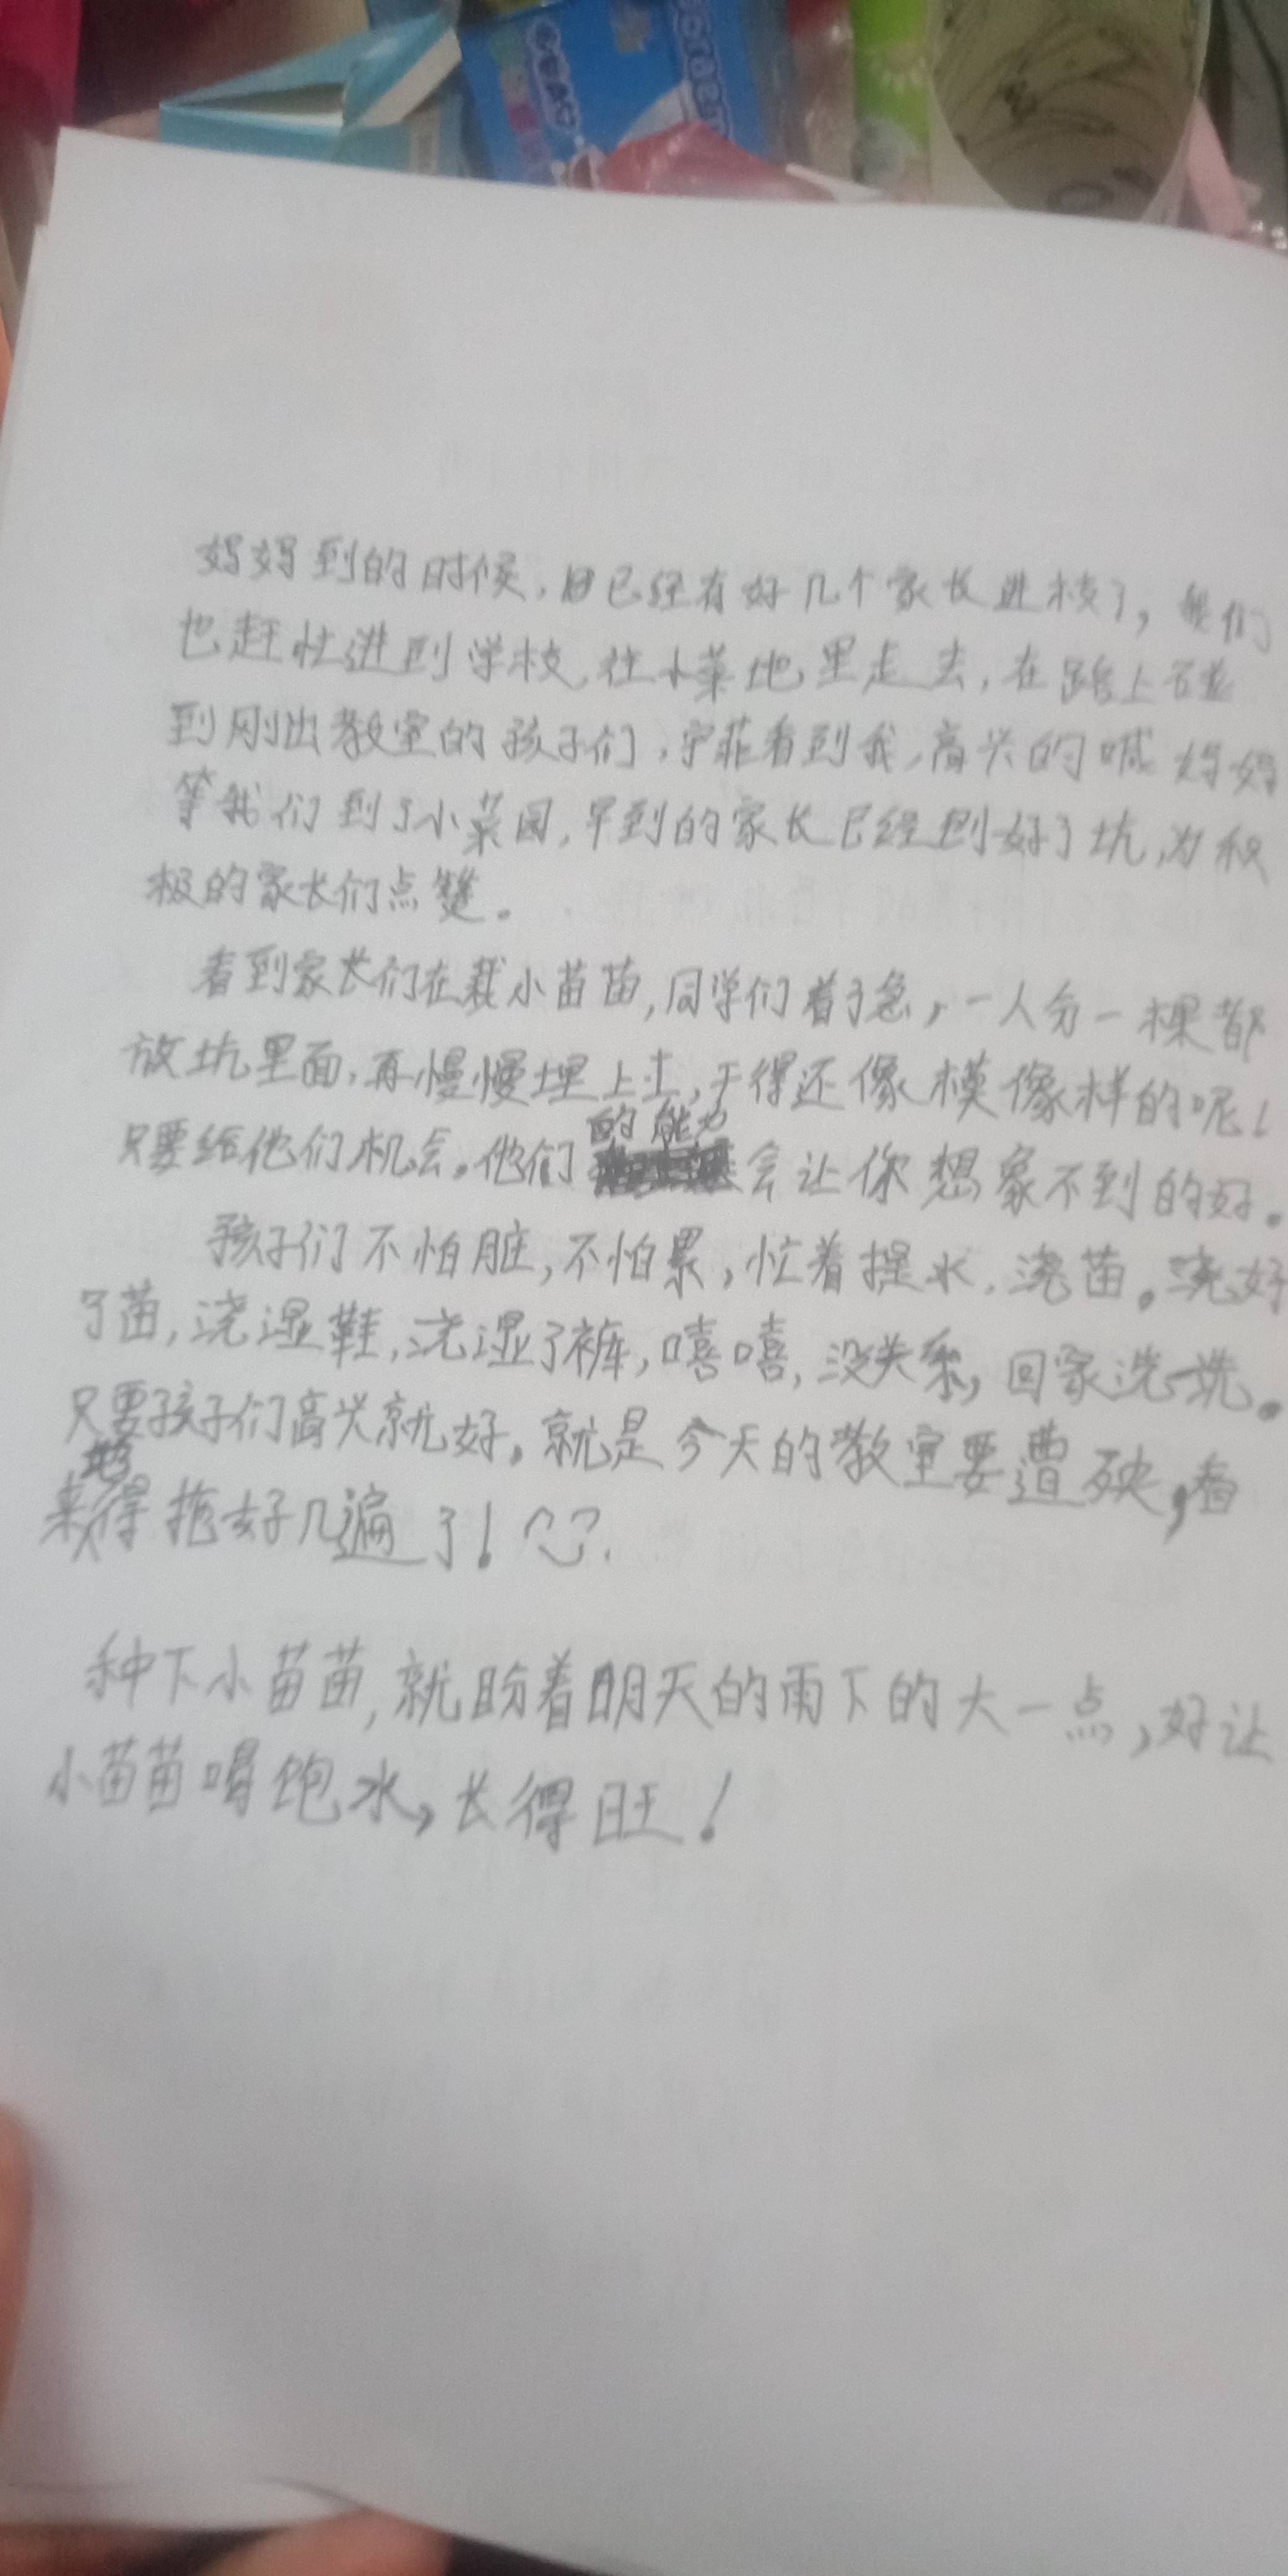 妈妈到的时候，已经有好几个家长进校了，我们
也赶忙进到学校，往小菜地里走去，在路上碰
到刚出教室的孩子们，宁菲看到我，高兴的喊妈妈
等我们到了小菜园，早到的家长已经刨好了坑，为积
极的家长们点赞。
看到家长们在栽小苗苗，同学们着了急，一人分一棵都
放坑里面，再慢慢埋上土，干得还像模像样的呢！
只要给他们机会。他们的能力会让你想象不到的好。
孩子们不怕脏，不怕累，忙着提水，浇苗。浇好
了苗，浇湿鞋，浇湿了裤，嘻嘻，没关系，回家洗一洗。
只要孩子们高兴就好。就是今天的教室要遭殃，看
来地得拖好几遍了！
种下小苗苗，就盼着明天的雨下的大一点，好让
小苗苗喝饱水，长得旺！